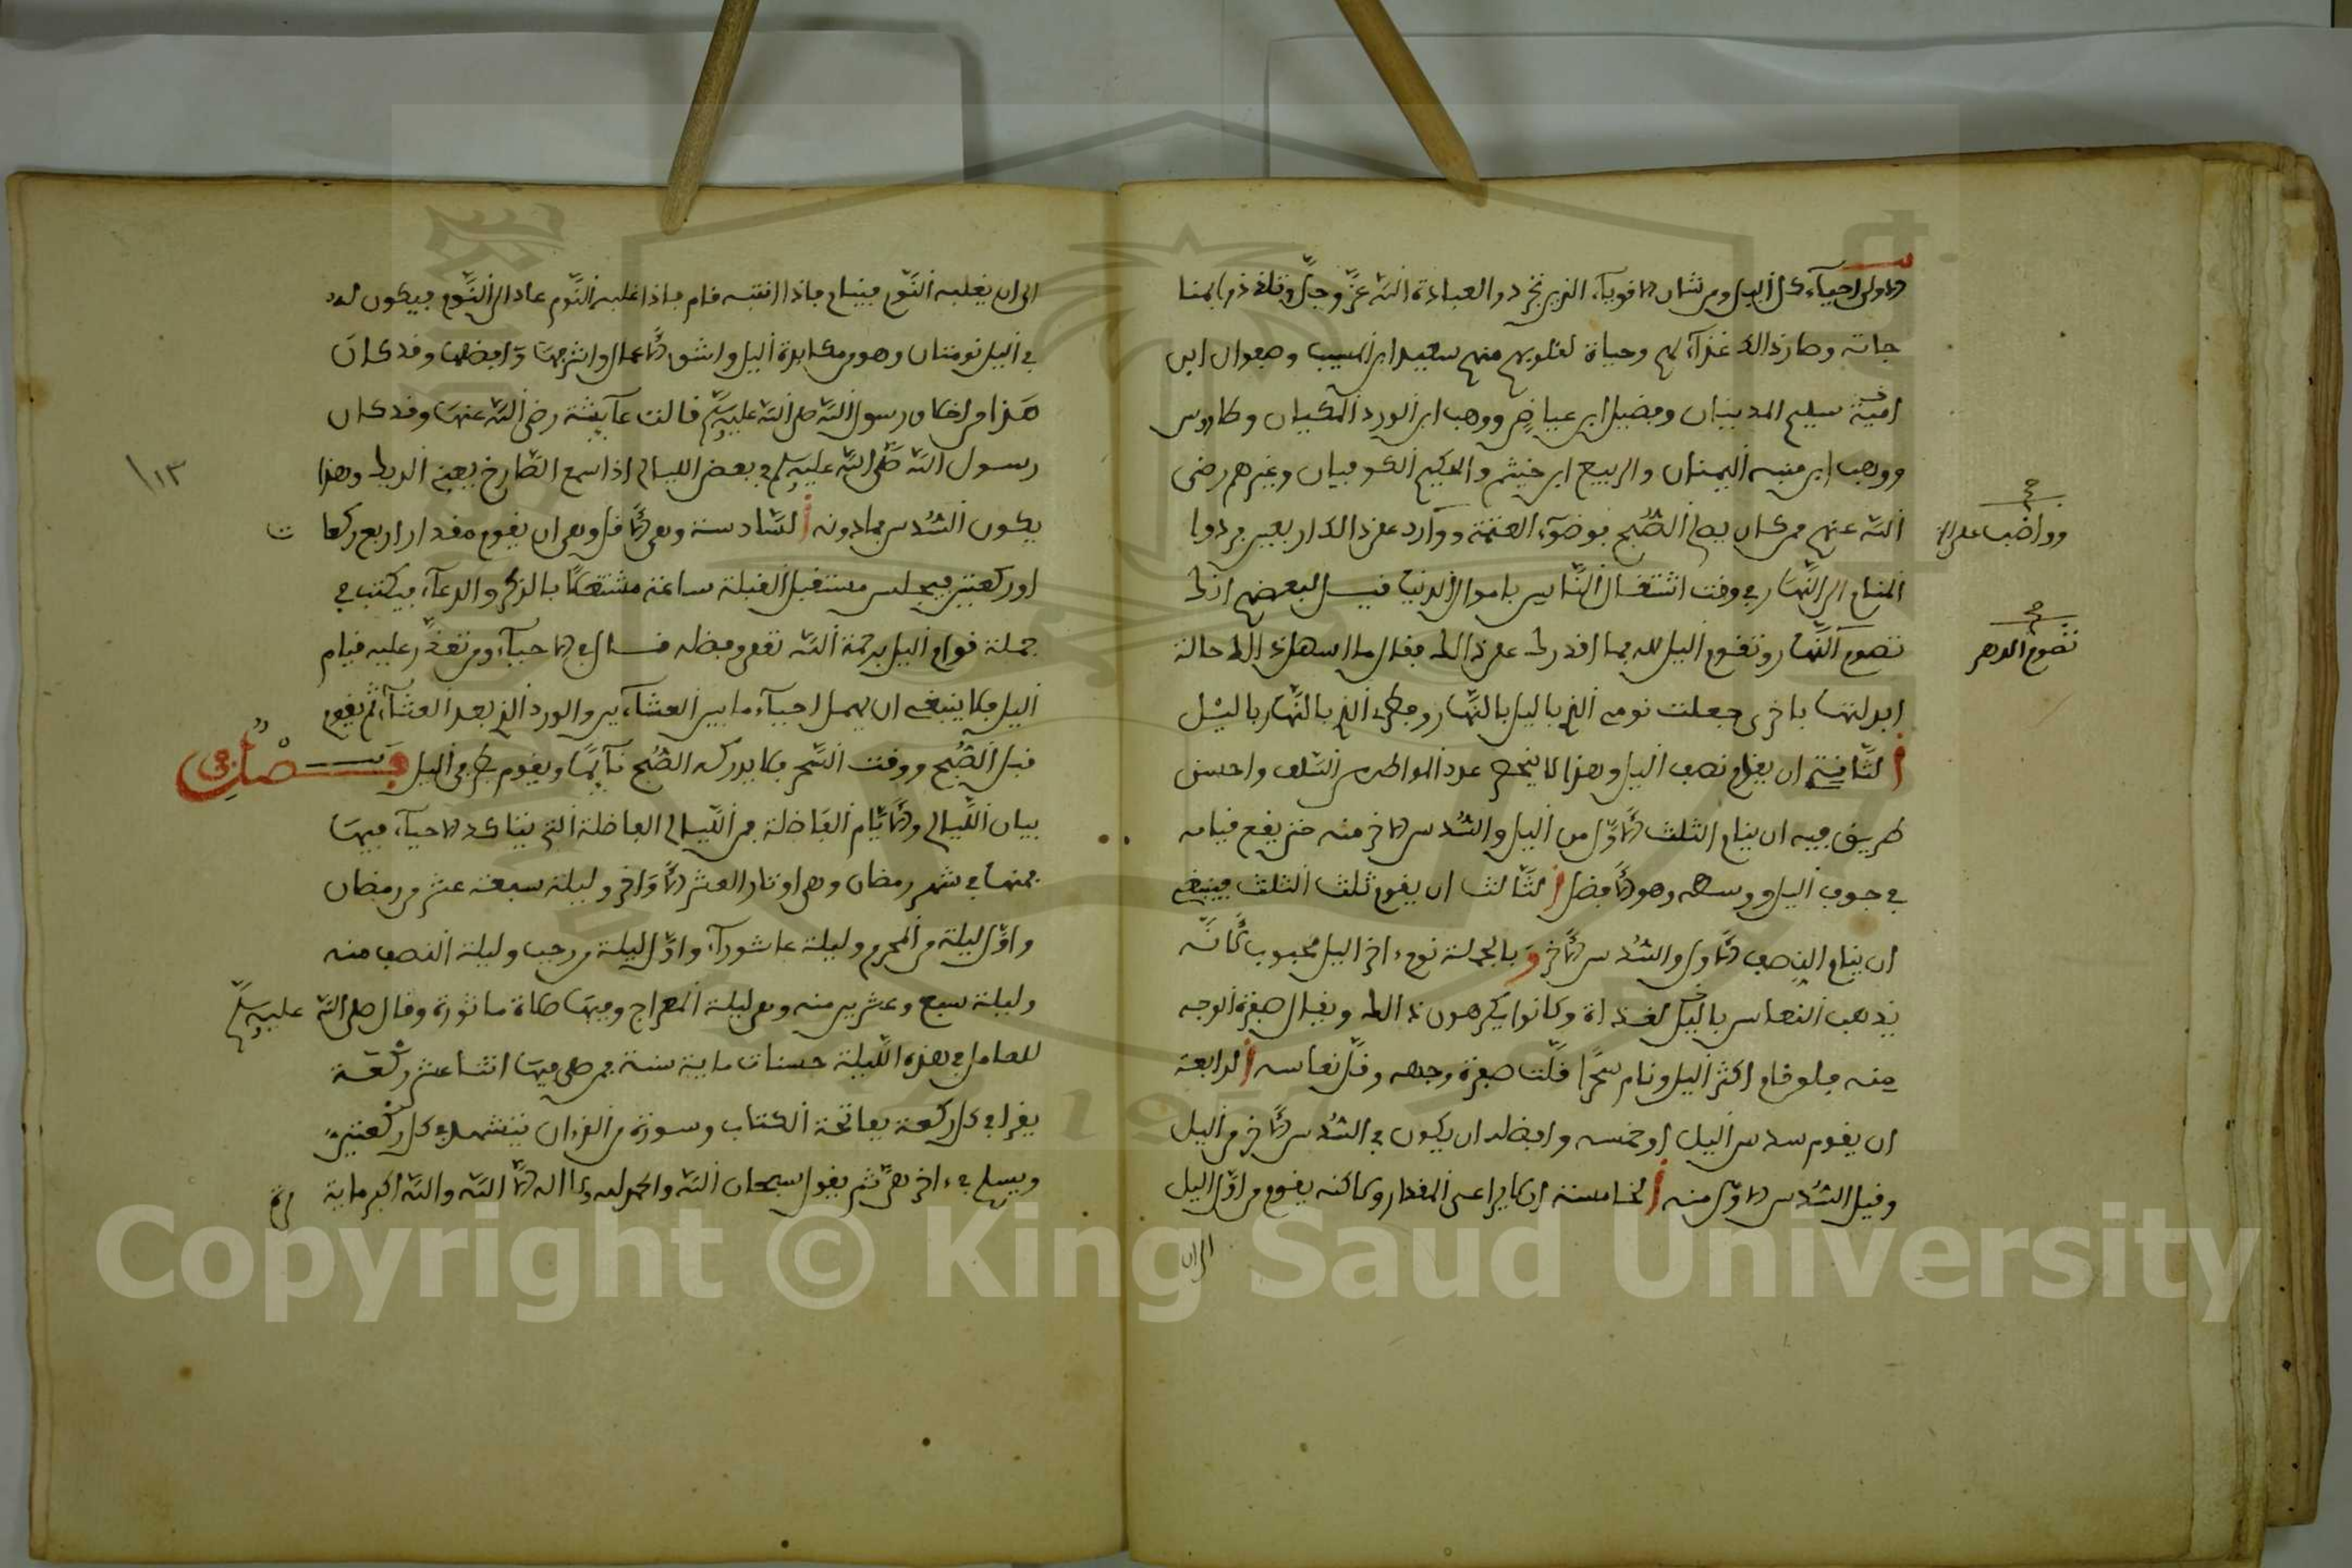 الاولى احياء كل اليل ومن شان الاقوياء الذين تجردوا لعبادة الله عز وجل وتلذذوا بمنا
جاته وصار ذالك غذاء لهم وحياة لقلوبهم منهم سعيد ابن المسيب وصفوان ابن
امية سليم المدنيان وفضيل ابن عياض ووهب ابن الورد المكيان وطاوس
ووهب ابن منبه اليمنان والربيع ابن خيثم والحكيم الكوفيان وغيرهم رضى
الله عنهم ممن كان يصلى الصبح بوضوء العتمة
وواضب على
المنام الى النهار في وقت اشتغال الناس باموال الدنيا قيل لبعضهم انك
تصوم النهار وتقوم اليل لله فما اقدرك على ذالك فقال ما اسهل ذالك حالة
تصوم الدهر
ابدلتها باخرى جعلت نومى الذي باليل بالنهار وفطرى الذي بالنهار باليل
الثانية ان يقوم نصف اليل وهذا لا ينحصر عدد المواظبين من السلف واحسن
طريق فيه ان ينام الثلث الاول من اليل والسدس الاخر منه حتى يقع قيامه
في جوف اليل ووسطه وهو الافضل الثالث ان يقوم ثلث الثلث فينبغي
ان ينام النصف الاول والسدس الاخر وبالجملة نوم ءاخر اليل محبوب لانه
يذهب النعاس بالغداة وكانوا يكرهون ذالك ويقلل صفرة الوجه
منه فلو قام اكثر اليل ونام سحرا قلت صفرة وجهه وقل نعاسه الرابعة
ان يقوم سدس اليل او خمسه وافضله ان يكون في السدس الاخر من اليل
وقيل السدس الاول منه الخامسة ان لا يراعى المقدار ولاكنه يقوم من اول اليل
الى ان
الى ان يغلبه النوم فينام فاذا انتبه قام فاذا غلبه النوم عاد الى النوم فيكون له
في اليل نومتان وهو من مكابدة اليل واشق الاعمال واشرفها وافضلها وقد كان
هذا من اخلاق رسول الله صلى الله عليه وسلم قالت عائشة رضى الله عنها وقد كان
رسول الله صلى الله عليه وسلم في بعض الليالى اذا سمع الصارخ يعني الديك وهذا
١١٣
يكون السدس فما دونه السادسة وهى الاقل وهى ان يقوم مقدار اربع ركعات
او ركعتين فيجلس مستقبل القبلة ساعة مشتغلا بالذكر والدعاء فيكتب في
جملة قوام اليل برحمة الله تعلى وفضله الاحياء ومن تعذر عليه قيام
اليل فلا ينبغي ان يهمل احياء ما بين العشاءين والورد الذي بعد العشاء ثم يقوم
قبل الصبح ووقت السحر فلا يدركه الصبح نائما ويقوم طرفى اليل فصل في
بيان الليالى والايام الفاضلة فمن الليالى الفاضلة التي يتاكد الاحياء فيها
فمنها في شهر رمضان وهى اوتار العشر الاواخر وليلة سبعة عشر من رمضان
واول ليلة من المحرم وليلة عاشوراء واول ليلة من رجب وليلة النصف منه
وليلة سبع وعشرين منه وهى ليلة المعراج وفيها صلاة ماثورة وقال صلى الله عليه وسلم
للعامل في هذه الليلة حسنات ماية سنة فمن صلى فيها اثنا عشر ركعة
يقرا في كل ركعة بفاتحة الكتاب وسورة من القرءان يتشهد في كل ركعتين
ويسلم في ءاخرهن ثم يقول سبحان الله والحمد لله ولا اله الا الله والله اكبر ماية مرة
Copyright © King Saud University
1957